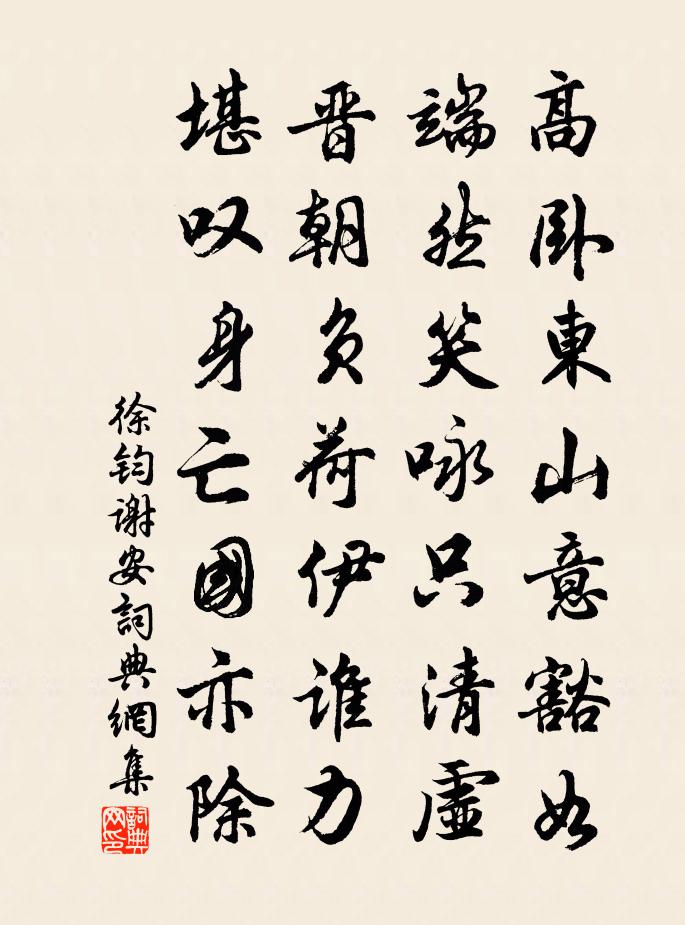 高卧東山意豁如
端然笑咏只清虛
晋朝負荷伊谁力
堪叹身亡國亦除
徐钧谢安詞典網集
詞典网印